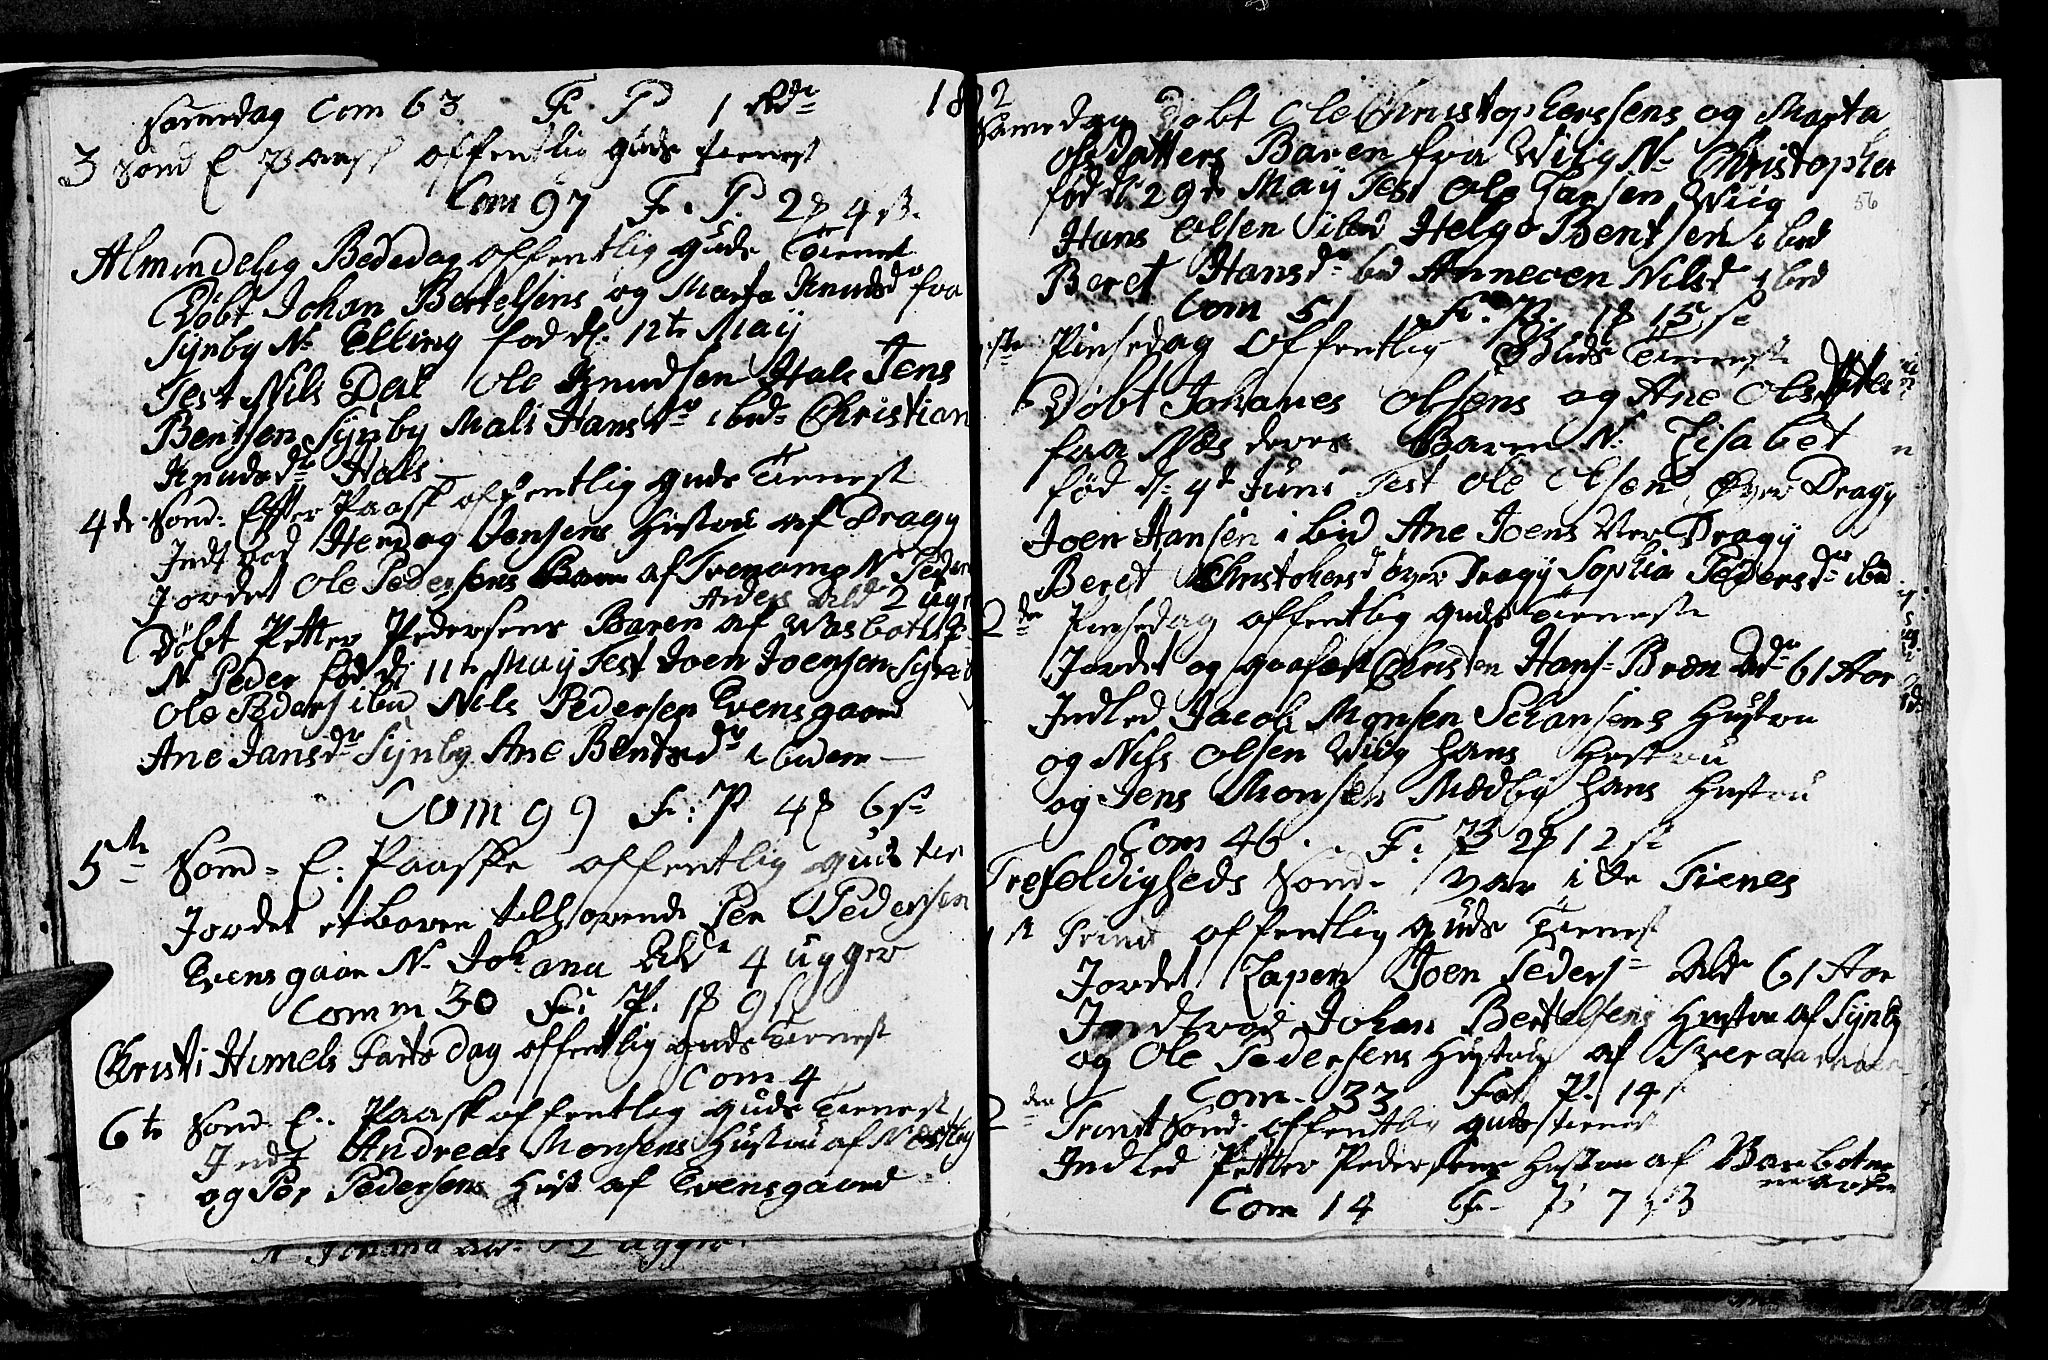 Samedag Com 63 F. P 1 Rdr 18
3 Sønd E Paask offentlig guds tienest
Com 97 F. P. 2 4 s.
Almindelig Bededag offentlig guds Tienest
Døbt Johan Bertelsens og Marta Knudsdr fra
Synby N. Elling fød d. 12te Maÿ
Test Nils Dal Ole Knudsen Hals Jens
Bentsen Synby Mali Hansdr ibd Christian
Knudsdr Hals
4de Sønd: Effter Paask offentlig guds Tienest
Jensens Hustru af Dragÿ
Jordet Ole Pedersens Barn af N Peder
Alder 2 ug
Døbt Petter Pedersens Baren af
N Peder fød d 11te Maÿ Test Joen Joensen
Ole Peders ibd Nils Pedersen Evensgaard
Ane Jansdr Sÿnby Ane Bentsdr ibidem
Com 99 F: P 4 6 s
5te Sønd= E: Paaske offentlig guds tien
Jordet et baren tilhørende Per Pedersen
Evensgaar N. Johana Ald 4 ugger
Comm 30 F: P. 1 9 s
Christi Himels Farts dag offentlig guds Tienest
Com 4
6te Sønd E: Paask offentlig guds Tienest
Indl Andreas Monsens Hustru af
og Per Pedersens Hust af Evensgaard
N Johana 2 ugger
2
Samedag Døbt Ole Christophersens og Marta
Olsdatters Baren fra Wiig N. Christopher
fød d: 29de Maÿ Test Ole Larsen Wiig
56
Hans Olsen ibd Helge Bentsen ibd
Beret Hansdr ibd Anneven Nilsd ibd
Com 51 F. P. 1 15 s
1ste Pinsedag Offentlig Guds Tienest
Døbt Johanes Olsens og Ane Olsdatter
fra Næs deres Baren N. Lisabet
fød d: 4d Juni Test Ole Olsen Over Dragÿ
Joen Hansen ibid Ane Joens Over Dragÿ
Beret Christohersd over Dragÿ Sophia Pedersdr ibd
2de Pinsedag offentlig guds Tieneste
Jordet og Christen Hans= Bron Ald 61 Aar
Indled Jacob Monsen Schansens Hustru
og Nils Olsen Wiig hans Hustru
og Jens Monsen Mædby hans Hustru
Com 46. F. P 2 12 s
Trefoldigheds Sønd= var i de Tienes
1st Trinit offentlig guds Tienest
Jordet Lapen Joen Peders= Ald 61 Aar
Johan Bertelsens Hustru af Synby
og Ole Pedersens Hustru af
Com. 33 F P. 14 s
2den Trinit Sønd: offentlig guds tienest
Indled Petter Pedersens Hustru af
Com 14 F. P 7 s